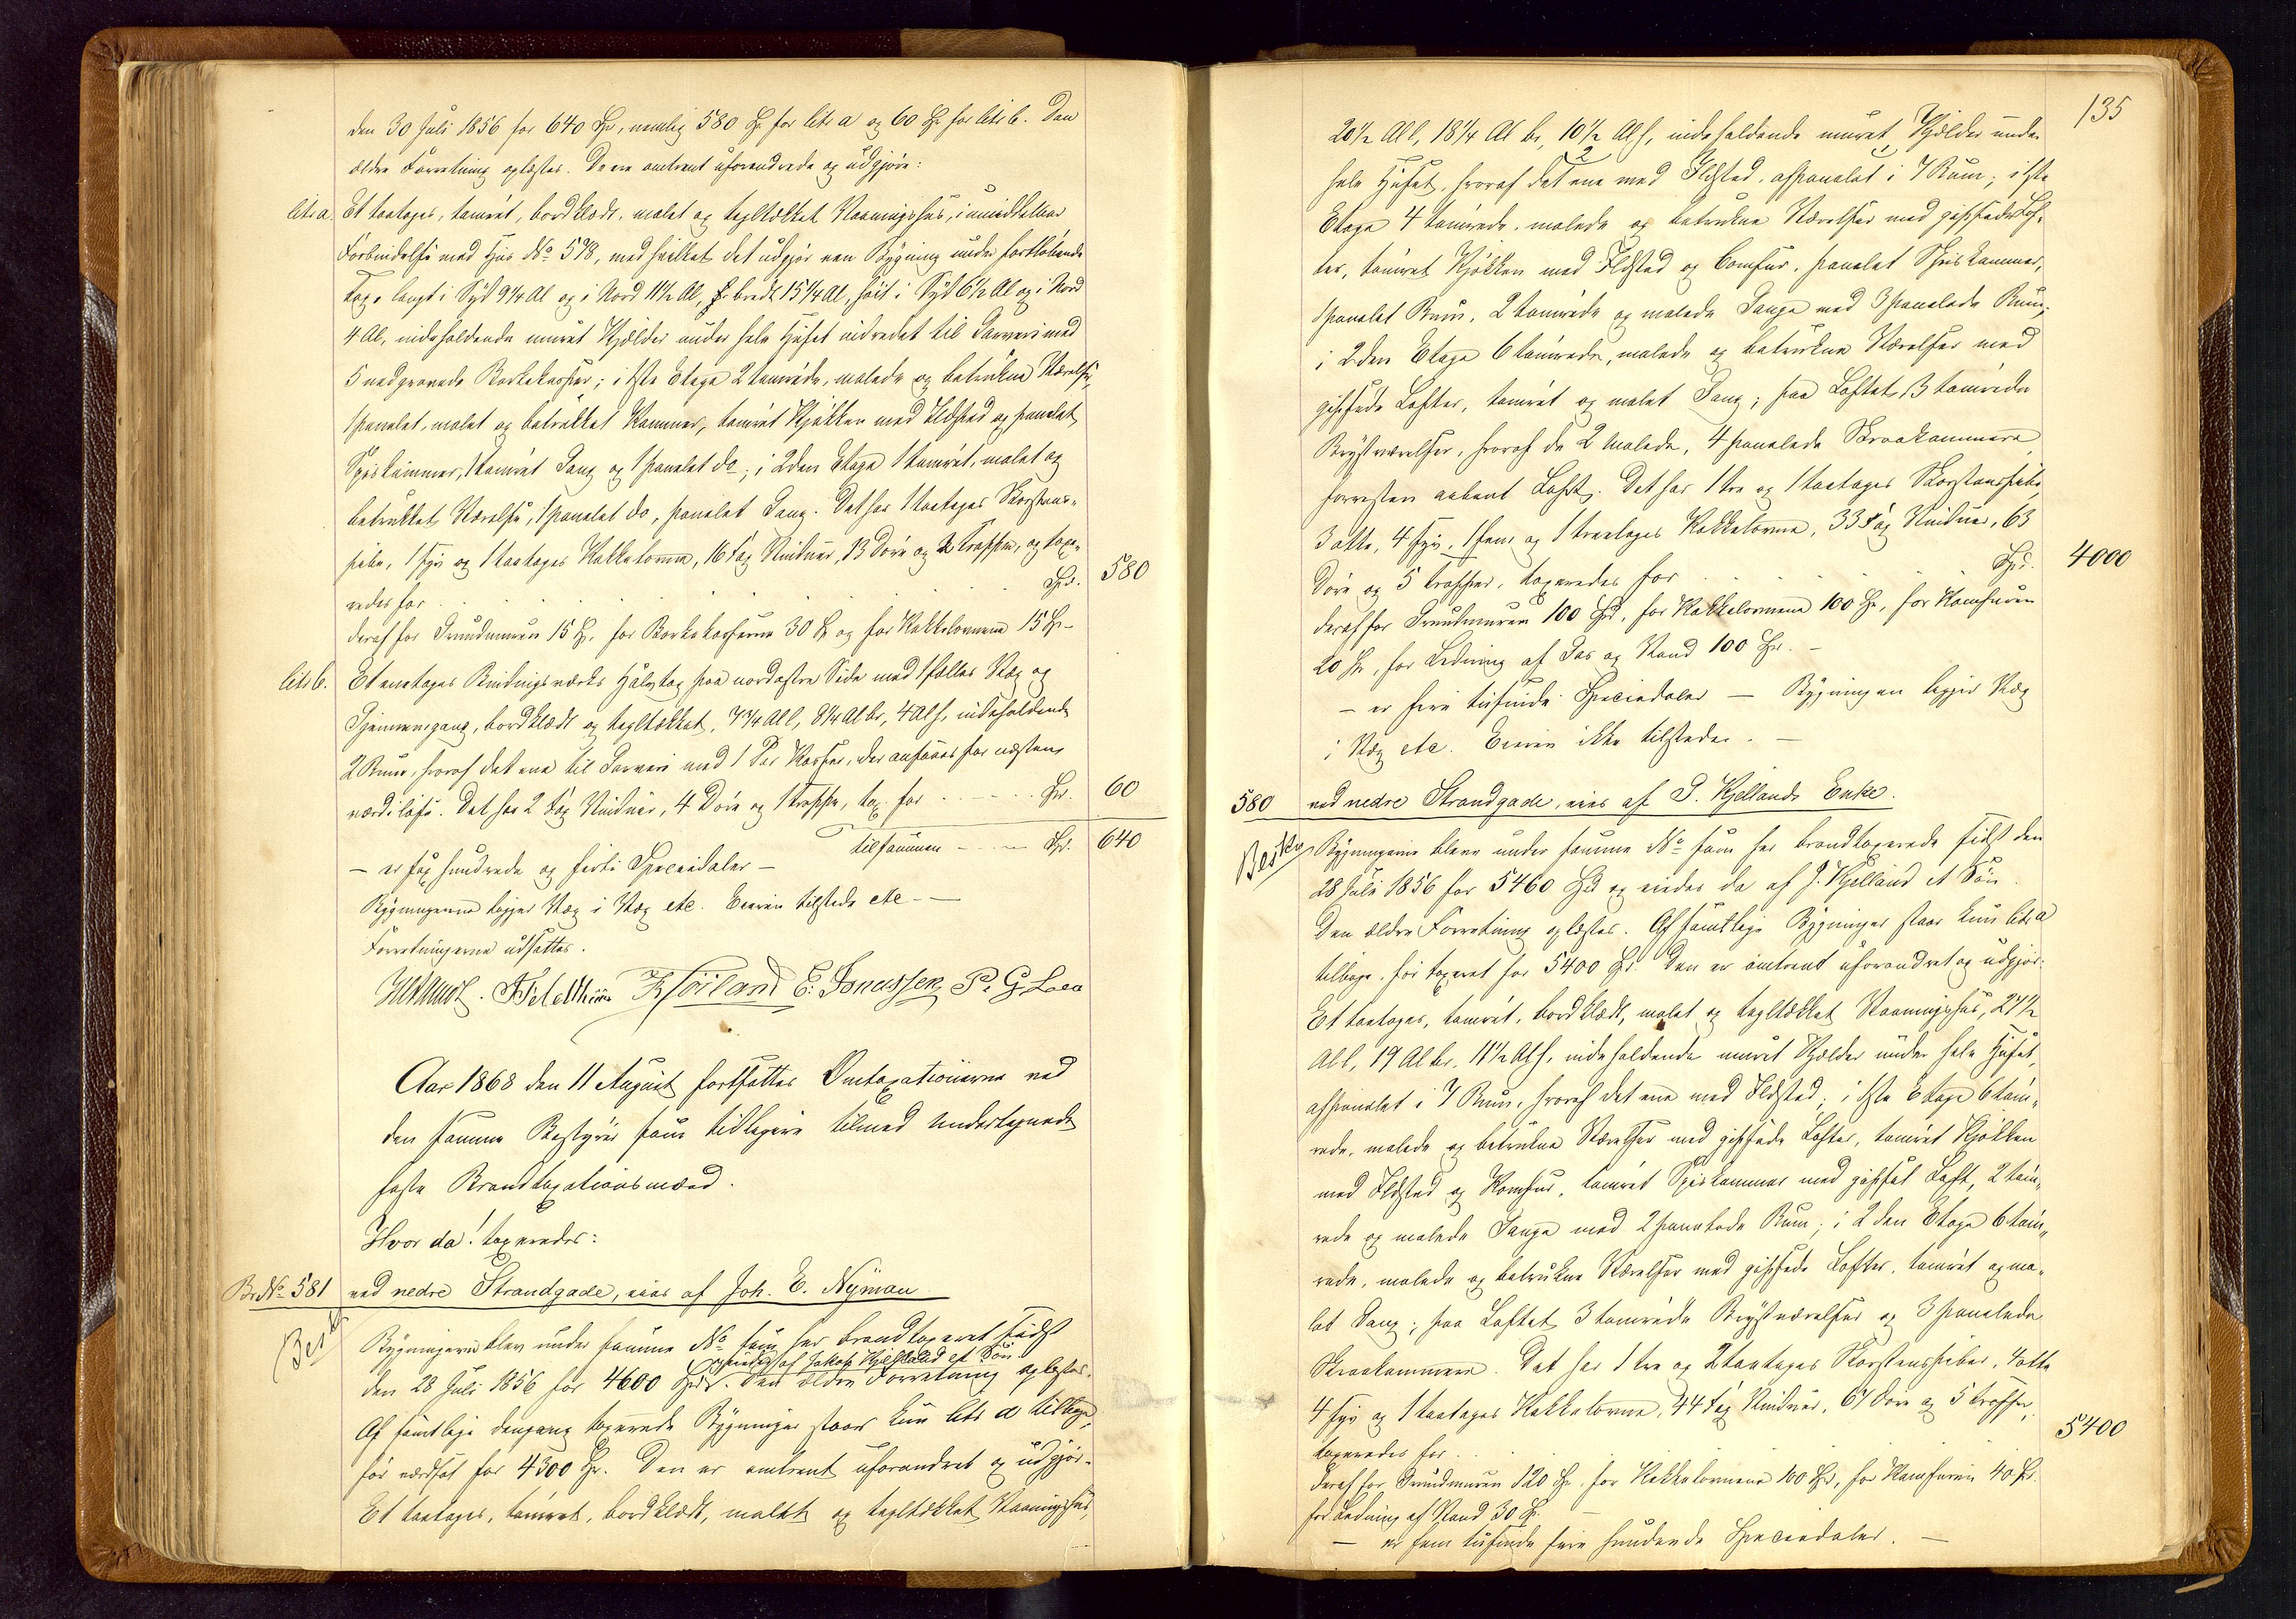 den 30 Juli 1856 for 640 Spd, nemlig 580 Sp for litr a og 60 Sp for litr b. Den
ældre Forretning oplæstes. De ere omtrent uforandrede og udgjøre:
litr a. Et toetages, tømret, bordklædt, malet og tegltækket Vaaningshus, i umiddelbar
Forbindelse med Hus No 578, med hvilket det udgjør een Bygning under fortløbende
Tag, langt i Syd 9 1/4 Al og i Nord 11 1/2 Al, bredt 15 1/4 Al, høit i Syd 6 1/2 Al og i Nord
4 Al, indeholdende muret Kjælder under hele Huset indredet til Garveri med
5 nedgravede Barkekarper; i 1ste Etage 2 tømrede, malede og betrukne Værelser,
1 panelet, malet og betrukket Kammer, tømret Kjøkken med Ildsted og panelet
Spiskammer, 1 tømret Gang og 1 panelet do; i 2den Etage 1 tømret, malet og
betrukket Værelse, 1 panelet do, panelet Gang. Det har 1 toetages Skorstens-
pibe, 1 fyr og 1 toetages Kakkelovne, 16 Fag Vinduer, 13 Døre og 2 Trapper, og taxe-
redes for . . . . . . . Spd. 580
deraf for Grundmuren 15 Sp, for Barkekarperne 30 Sp og for Kakkelovnene 15 Sp -
litr b. Et enetages Bindingsværks Halvtag paa nordøstre Side med 1 fælles Væg og
Gjennemgang, bordklædt og tegltækket, 7 3/4 Al l, 8 1/4 Al br, 4 Al h, indeholdende
2 Rum, hvoraf det ene til Garveri med 1 Par Karper, der ansaaes for næsten
værdiløse. Det har 2 Fag Vinduer, 4 Døre og 1 Trappe, tax. for . . . Sp. 60
tilsammen - - - Sp. 640
- er sex hundrede og firti Speciedaler -
Bygningerne ligger Væg i Væg etc. Eieren tilstede etc - -
Forretningerne udsattes.
F. Feldthuus K Høiland E. Jonassen P. G. Loen
Aar 1868 den 11 August fortsattes Omtaxationerne ved
den samme Bestyrer som tidligere tilmed undertegnede
faste Brandtaxationsmænd.
Hvor da! taxeredes:
Br. No 581 ved nedre Strandgade, eies af Joh. E. Nyman
Besk
Bygningerne blev under samme No som her brandtaxeret sidst
og eiedes af Jakob Kjelland et Søn.
den 28 Juli 1856 for 4600 Spd. Den ældre Forretning oplæstes.
Af samtlige dengang taxerede Bygninger staar kun litr a tilbage,
før værdsat for 4300 Sp. Den er omtrent uforandret og udgjør-
Et toetages, tømret, bordklædt, malet og tegltækket Vaaningshus,
135
20 1/2 Al l, 18 1/4 Al br, 10 1/2 Al h, indeholdende muret Kjælder under
hele Huset, hvoraf det ene med Ildsted, afpanelet i 7 Rum; i 1ste
2
Etage 4 tømrede, malede og betrukne Værelser med gipsede Lof-
ter, tømret Kjøkken med Ildsted og Comfur, panelet Spiskammer,
1 panelet Rum, 2 tømrede og malede Gange med 3 panelede Rum;
i 2den Etage 6 tømrede, malede og betrukne Værelser med
gipsede Lofter, tømret og malet Gang; paa Loftet 3 tømrede
Brystværelser, hvoraf de 2 malede, 4 panelede Skraakammere,
forresten aabent Loft. Det har 1 tre og 1 toetages Skorstenspibe,
3 otte, 4 fyr, 1 fem og 1 treetages Kakkelovne, 33 Fag Vinduer, 63
Døre og 5 Trapper, taxeredes for . . . Spd. 4000
deraf for Grundmuren 100 Spd, for Kakkelovnene 100 Sp, for Komfuren
20 Sp, for Ledning af Gas og Vand 100 Sp. -
- er fire tusinde Speciedaler - Bygningen ligger Væg
i Væg etc. Eieren ikke tilstede. -
580 ved nedre Strandgade, eies af G. Kjellands Enke.
Besk
Bygningerne bleve under samme No som her brandtaxerede sidst den
28 Juli 1856 for 5460 Spd og eiedes da af J. Kjelland et Søn
Den ældre Forretning oplæstes. Af samtlige Bygninger staar kun litr a
tilbage, før taxeret for 5400 Sp. Den er omtrent uforandret og udgjør:
Et toetages, tømret, bordklædt, malet og tegltækket Vaaningshus, 27 1/2
Al l, 19 Al br, 11 1/2 Al h, indeholdende muret Kjælder under hele Huset,
afpanelet i 7 Rum, hvoraf det ene med Ildsted; i 1ste Etage 6 tøm-
rede, malede og betrukne Værelser med gipsede Lofter, tømret Kjøkken
med Ildsted og Komfur, tømret Spiskammer med gipset Loft, 2 tøm-
rede og malede Gange med 2 panelede Rum; i 2den Etage 6 tøm-
rede, malede og betrukne Værelser med gipsede Lofter, tømret og ma-
let Gang; paa Loftet 3 tømrede Brystværelser og 3 panelede
Skraakammere. Det har 1 tre og 2 toetages Skorstenspiber, 4 otte
4 fyr og 1 toetages Kakkelovne, 44 Fag Vinduer, 67 Døre og 5 Trapper,
taxeredes for . . . 5400
deraf for Grundmuren 120 Sp, for Kakkelovnene 100 Sp, for Komfuren 40 Sp.
for Ledning af Vand 30 Sp. -
- er fem tusinde fire hundrede Speciedaler. -